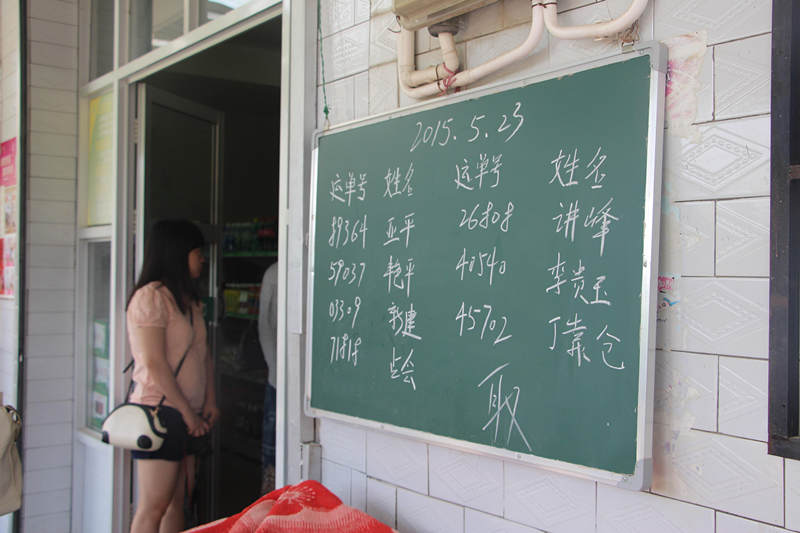 2015.5.23
运单号 姓名 运单号 姓名
89364 亚平 26808 讲峰
59037 艳平 40540 李贵玉
03309 新建 45702 丁靠仓
71818 占会
取